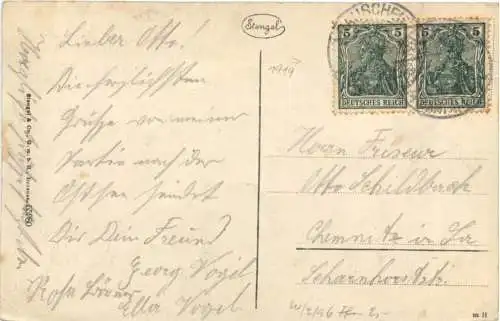 Stengel
Lieber Otto!
Die herzlichsten
Grüße von meiner
Partie nach der
Ostsee sendet
Dir Dein Freund
Georg Vogel
Ella Vogel
Rosa
Stengel & Co., G. m. b. H., Dresden 63980
1919
5 5 5 5
DEUTSCHES REICH DEUTSCHES REICH
Herrn Friseur
Otto Schildbach
Chemnitz in Sa
Scharnhorststr.
m 11